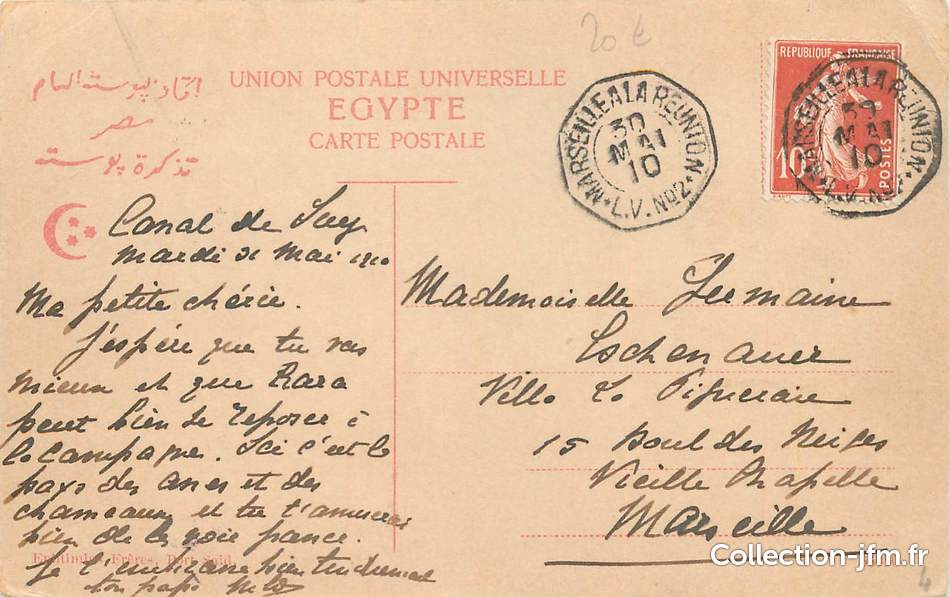 20 €
اتحاد پوسته العام
مصر
تذكرة پوسته
UNION POSTALE UNIVERSELLE
EGYPTE
CARTE POSTALE
MARSEILLE A LA REUNION
30
MAI
10
L.V. No2
REPUBLIQUE FRANÇAISE
10
POSTES
MARSEILLE A LA REUNION
30
MAI
10
L.V. No2
Canal de Suez
mardi 31 Mai 1910
Ma petite chérie.
J'espère que tu vas
mieux et que Zara
peut bien se reposer à
la campagne. Ici c'est le
pays des anes et des
chameaux et tu t'amuserais
bien de le voir
Je t'embrasse bien tendrement
ton papa
Mademoiselle Germaine
Eschenauer
Villa La
15 Boul des Neiges
Vieille Chapelle
Marseille
Ephtimios Frères, Port-Saïd
Collection-jfm.fr
4